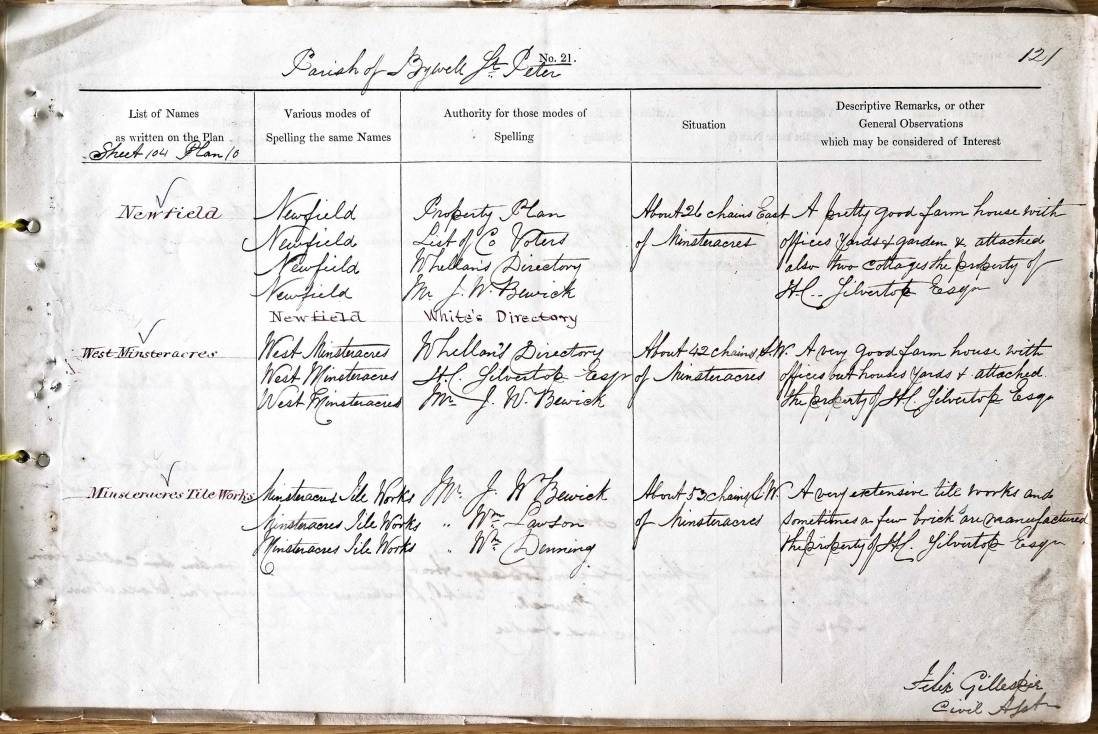 Parish of Bywell St. Peter
No. 21.
121
List of Names
as written on the Plan
Sheet 104 Plan 10
Various modes of
Spelling the same Names
Authority for those modes of
Spelling
Situation
Descriptive Remarks, or other
General Observations
which may be considered of Interest
Newfield
Newfield
Newfield
Newfield
Newfield
Newfield
Property Plan
List of Co Voters
Whellan's Directory
Mr J. W. Bewick
White's Directory
About 26 chains East
of Minsteracres
A pretty good farm house with
offices yards & garden & attached
also two cottages the property of
H.C. Silvertop Esqr
West Minsteracres
West Minsteracres
West Minsteracres
West Minsteracres
Whellan's Directory
H.C. Silvertop Esqr
Mr J. W. Bewick
About 42 chains S.W.
of Minsteracres
A very good farm house with
offices out houses yards & attached
the property of H.C. Silvertop Esqr
Minsteracres Tile Works
Minsteracres Tile Works
Minsteracres Tile Works
Minsteracres Tile Works
Mr. J. W Bewick
" Wm Lawson
" Wm Denning
About 53 chains S.W.
of Minsteracres
A very extensive tile works and
sometimes a few bricks are manufactured
the property of H.C. Silvertop Esqr
Felix Gillespie
Civil Asst